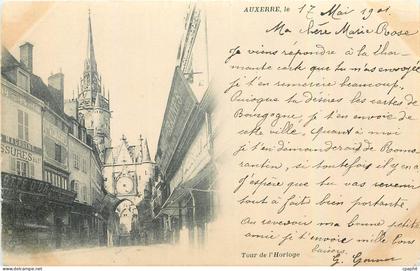 AUXERRE, le 17 Mai 1901
Ma chère Marie Rose
Je viens répondre à ta char
mante carte que tu m'as envoyée
je t'en remercie beaucoup.
Puisque tu désires les cartes de
Bourgogne je t'en envoie de
cette ville, Quant à moi
je t'en demanderai de Romo
rantin, si toutefois il y en a
J'espère que tu vas revenir
tout à fait bien portante.
Au revoir ma bonne petite
amie je t'envoie mille bons
baisers. G.
Tour de l'Horloge